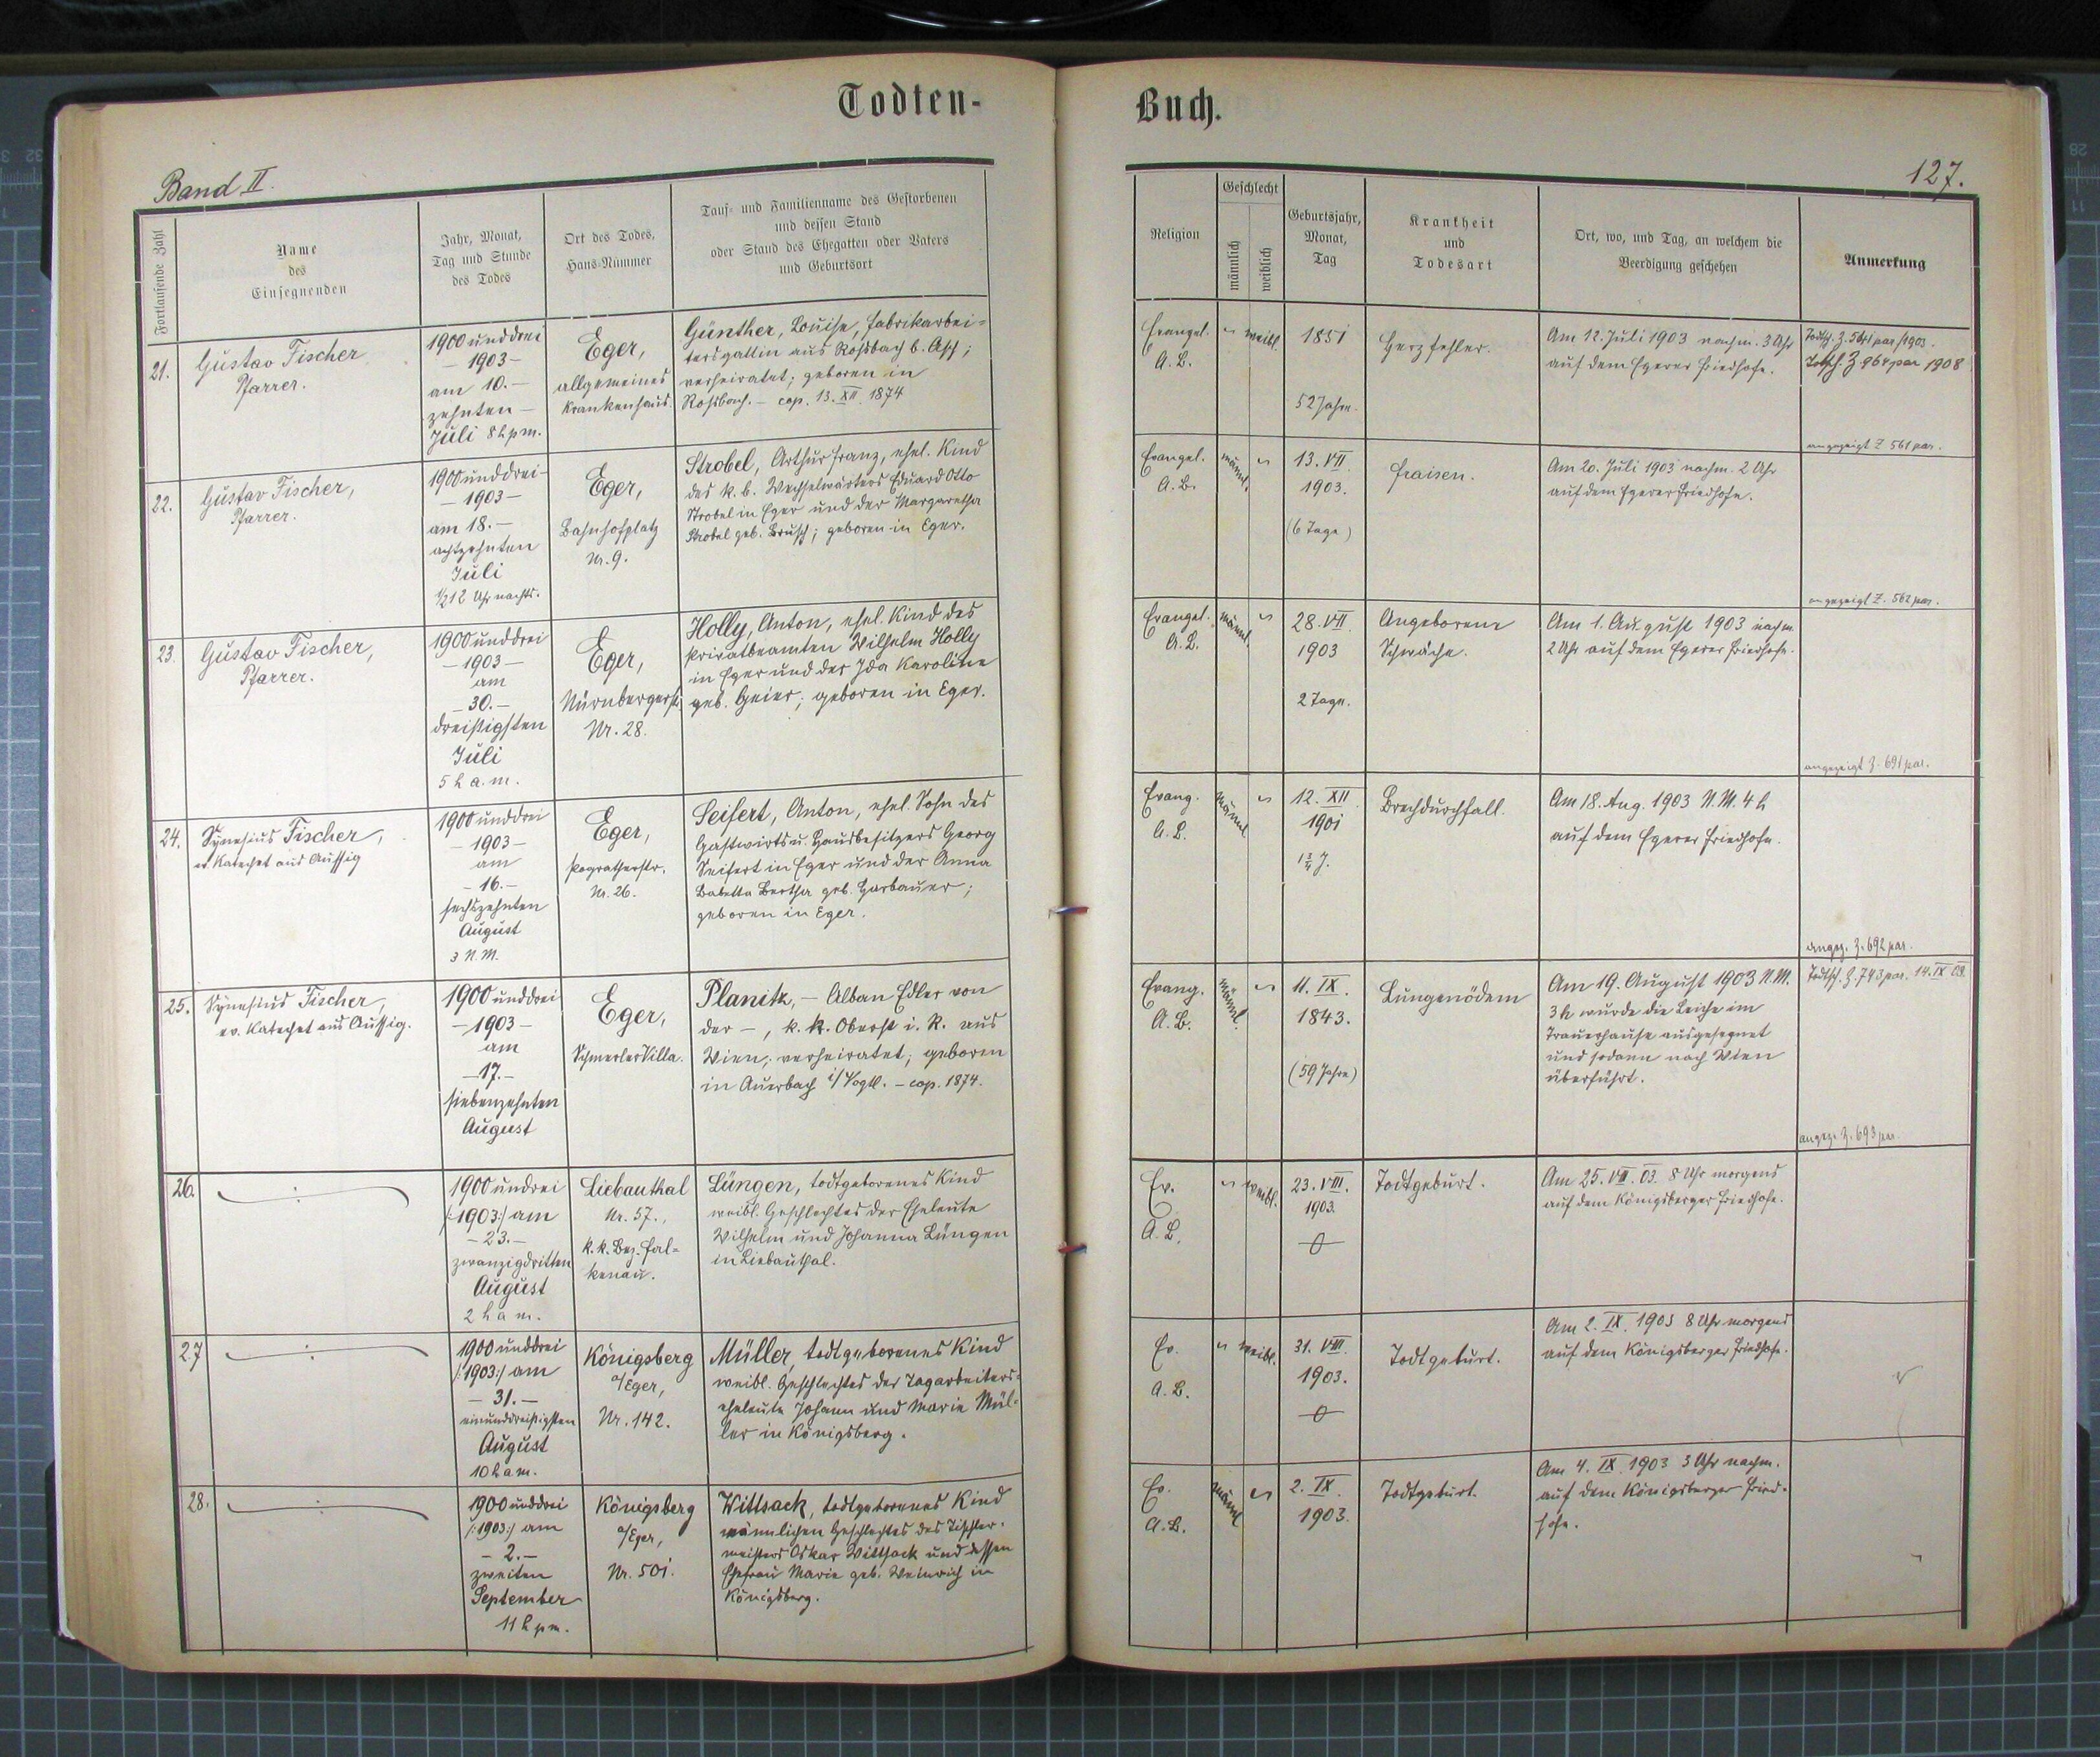 Todten-
Buch.
Band II.
127.
Fortlaufende Zahl
Name
des
Einsegnenden
Jahr, Monat,
Tag und Stunde
des Todes
Ort des Todes,
Haus-Nummer
Tauf- und Familienname des Gestorbenen
und dessen Stand
oder Stand des Ehegatten oder Vaters
und Geburtsort
Religion
Geschlecht
männlich
weiblich
Geburtsjahr,
Monat,
Tag
Krankheit
und
Todesart
Ort, wo, und Tag, an welchem die
Beerdigung geschehen
Anmerkung
21.
Gustav Fischer
Pfarrer.
1900 unddrei
- 1903 -
am 10. -
zehnten -
Juli 8 h pm.
Eger,
allgemeines
Krankenhaus.
Günther, Louise, Fabrikarbei=
tersgattin aus Roßbach b. Asch;
verheiratet; geboren in
Rossbach. - cop. 13. XII 1874
Evangel.
A. B.
" weibl.
1851
52 Jahre.
Herzfehler.
Am 12. Juli 1903 nachm. 3 Uhr
auf dem Egerer Friedhofe.
Todtsch. Z. 561 par/1903.
Todtsch. Z 964 par 1908
angezeigt Z 561 par.
22.
Gustav Fischer,
Pfarrer.
1900 unddrei
- 1903 -
am 18. -
achtzehnten
Juli
½12 Uhr nachts.
Eger,
Bahnhofplatz
Nr. 9.
Strobel, Arthur Franz, ehel. Kind
des k. b. Wechselwärters Eduard Otto
Strobel in Eger und der Margaretha
Strobel geb. Brusch; geboren in Eger.
Evangel.
A. B.
männl. "
13. VII
1903.
(6 Tage)
Fraisen.
Am 20. Juli 1903 nachm. 2 Uhr
auf dem Egerer Friedhofe.
angezeigt Z. 562 par.
23.
Gustav Fischer,
Pfarrer.
1900 unddrei
- 1903 -
am
- 30. -
dreißigsten
Juli
5 h a. m.
Eger,
Nürnbergerstr.
Nr. 28.
Holly, Anton, ehel. Kind des
Privatbeamten Wilhelm Holly
in Eger und der Ida Karoline
geb. Geier; geboren in Eger.
Evangel.
A. B.
männl. "
28. VII
1903
2 Tage.
Angeborene
Schwäche.
Am 1. August 1903 nachm.
2 Uhr auf dem Egerer Friedhofe.
angezeigt Z. 691 par.
24.
Synesius Fischer,
ev. Katechet aus Aussig
1900 unddrei
- 1903 -
am
- 16. -
sechszehnten
August
3 N. M.
Eger,
Pogratherstr.
Nr. 26.
Seifert, Anton, ehel. Sohn des
Gastwirts u. Hausbesitzers Georg
Seifert in Eger und der Anna
Babetta Bertha geb. Harbauer;
geboren in Eger.
Evang.
A. B.
männl. "
12. XII
1901
1¾ J.
Brechdurchfall.
Am 18. Aug. 1903 N. M. 4 h
auf dem Egerer Friedhofe.
angez. Z. 692 par.
25.
Synesius Fischer,
ev. Katechet aus Aussig.
1900 unddrei
- 1903 -
am
- 17. -
siebenzehnten
August
Eger,
Schmerler Villa.
Planitz, - Alban Edler von
der -, k. k. Oberst i. R. aus
Wien; verheiratet; geboren
in Auerbach i/Vogtl. - cop. 1874.
Evang.
A. B.
männl. "
11. IX.
1843.
(59 Jahre)
Lungenödem
Am 19. August 1903 N. M.
3 h wurde die Leiche im
Trauerhause ausgesegnet
und sodann nach Wien
überführt.
Todtsch. Z. 743 par. 14. IX 03.
angez. Z. 693 par.
26.
1900 undrei
/:1903:/ am
- 23. -
zwanzigdritten
August
2 h a m.
Liebauthal
Nr. 57.,
k. k. Bez. Fal=
kenau.
Lüngen, todtgeborenes Kind
weibl. Geschlechtes der Eheleute
Wilhelm und Johanna Lüngen
in Liebauthal.
Ev.
A. B.
" weibl.
23. VIII.
1903.
Todtgeburt.
Am 25. VIII. 03. 8 Uhr morgens
auf dem Königsberger Friedhofe.
27
1900 unddrei
/:1903:/ am
- 31. -
einunddreißigsten
August
10 h a m.
Königsberg
a/Eger,
Nr. 142.
Müller, todtgeborenes Kind
weibl. Geschlechtes der Tagarbeiters=
eheleute Johann und Marie Mül=
ler in Königsberg.
Ev.
A. B.
" weibl.
31. VIII.
1903.
Todtgeburt.
Am 2. IX. 1903 8 Uhr morgens
auf dem Königsberger Friedhofe.
28.
1900 unddrei
/:1903:/ am
- 2. -
zweiten
September
11 h pm.
Königsberg
a/Eger,
Nr. 501.
Wittsack, todtgeborenes Kind
männlichen Geschlechtes des Tischler=
meisters Oskar Wittsack und dessen
Ehefrau Marie geb. Weinrich in
Königsberg.
Ev.
A. B.
männl "
2. IX.
1903.
Todtgeburt.
Am 4. IX. 1903 3 Uhr nachm.
auf dem Königsberger Fried=
hofe.